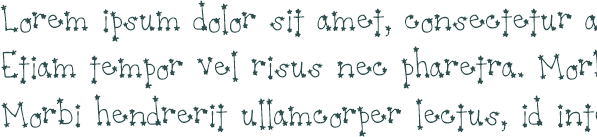 Lorem ipsum dolor sit amet, consectetur a
Etiam tempor vel risus nec pharetra. Mor
Morbi hendrerit ullamcorper lectus, id int